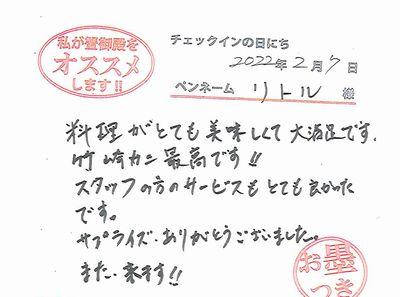 私が蟹御殿を
オススメ
します!!
チェックインの日にち
2022年2月7日
ペンネーム リトル 様
料理がとても美味しくて大満足です。
竹崎カニ最高です!!
スタッフの方のサービスもとても良かった
です。
サプライズ・ありがとうございました。
また、来ます!!
お墨
つき